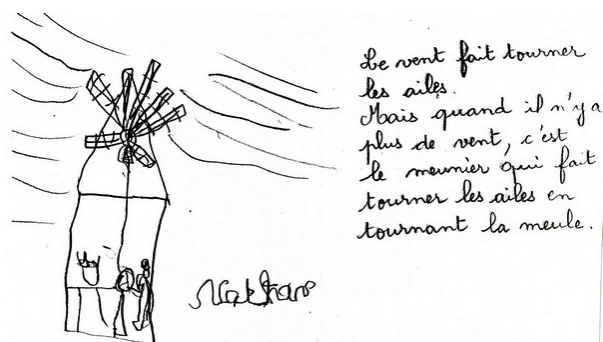 Le vent fait tourner
les ailes.
Mais quand il n'y a
plus de vent, c'est
le meunier qui fait
tourner les ailes en
tournant la meule.
Nathan